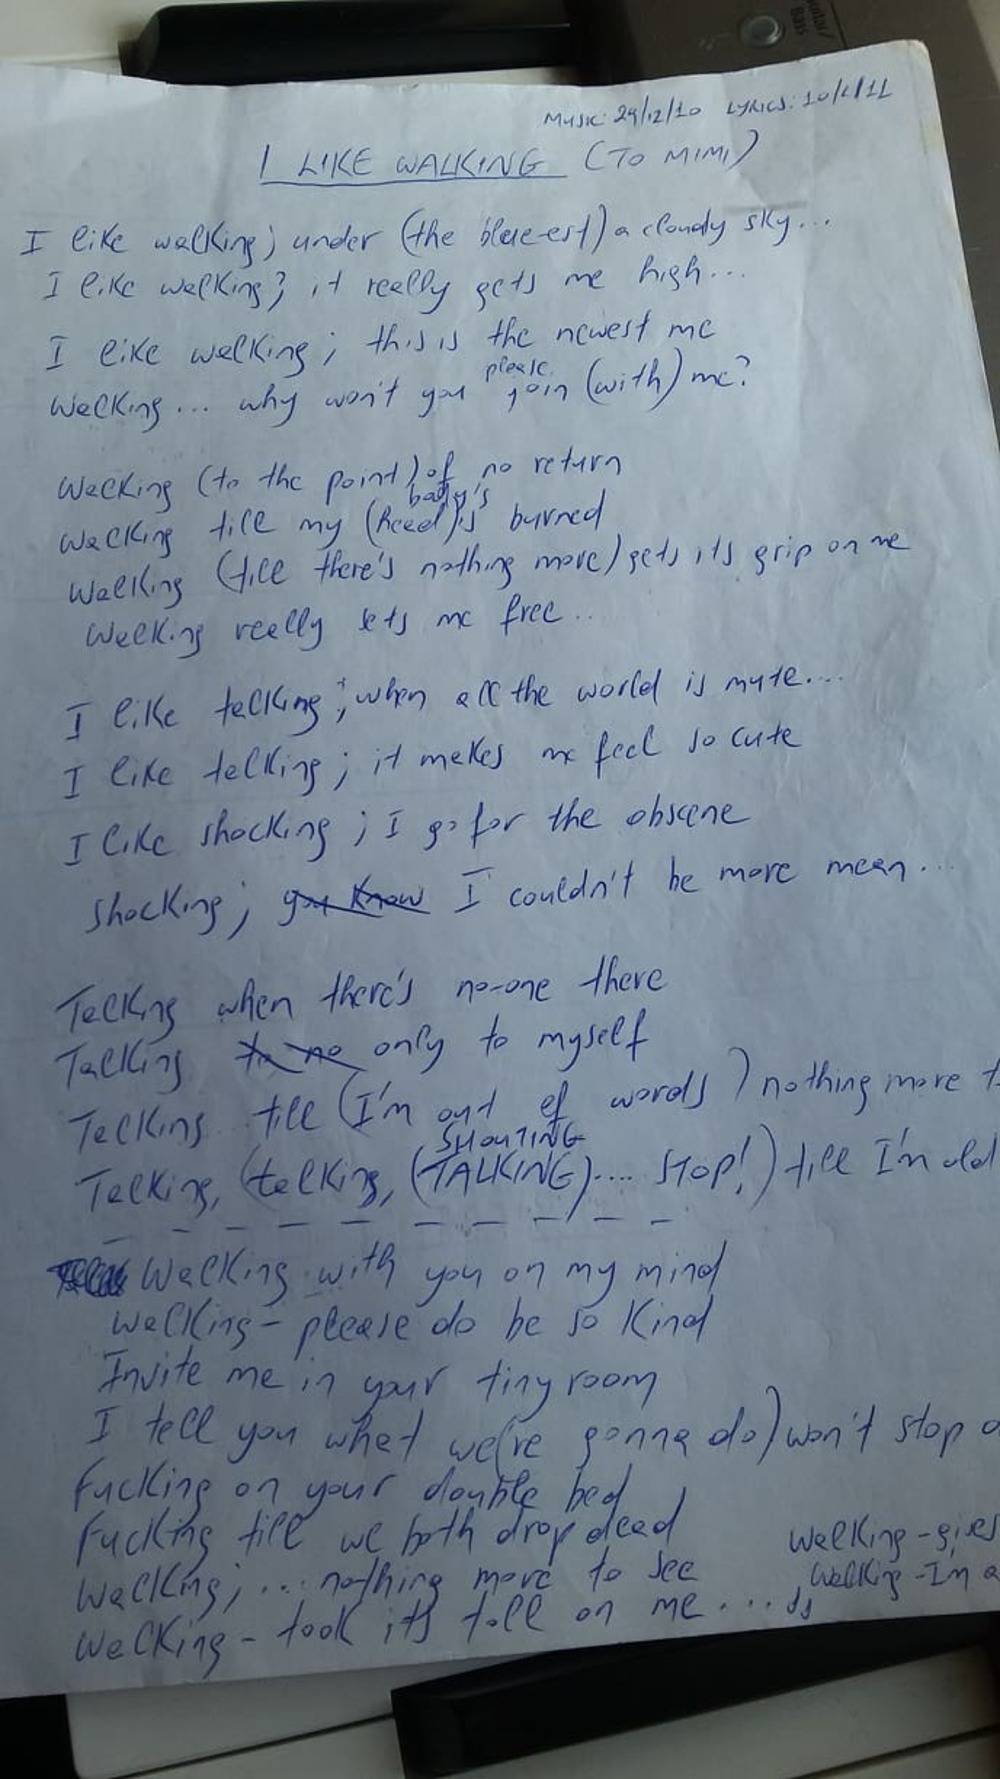 Guitar/
Bass
MUSIC: 29/12/10 LYRICS: 10/1/11
I LIKE WALKING (TO MIMI)
I like walking; under (the blue-est) a cloudy sky...
I like walking; it really gets me high...
I like walking; this is the newest me
please
Walking... why won't you join (with) me?
Walking (to the point) of no return
body's
Walking till my (head) is burned
Walking (till there's nothing more) gets its grip on me
Walking really sets me free...
I like talking; when all the world is mute....
I like talking; it makes me feel so cute
I like shocking; I go for the obscene
shocking; you know I couldn't be more mean...
Talking when there's no-one there
Talking to no only to myself
Talking till (I'm out of words) nothing more t
SHOUTING
Talking, (talking, (TALKING).... STOP!) till I'm old
Walking with you on my mind
Walking - please do be so kind
Invite me in your tiny room
I tell you what we('re gonna do) won't stop
Fucking on your double bed
Fucking till we both drop dead
Walking;... nothing more to see
Walking - took its toll on me....
Walking - gives
Walking - I'm a